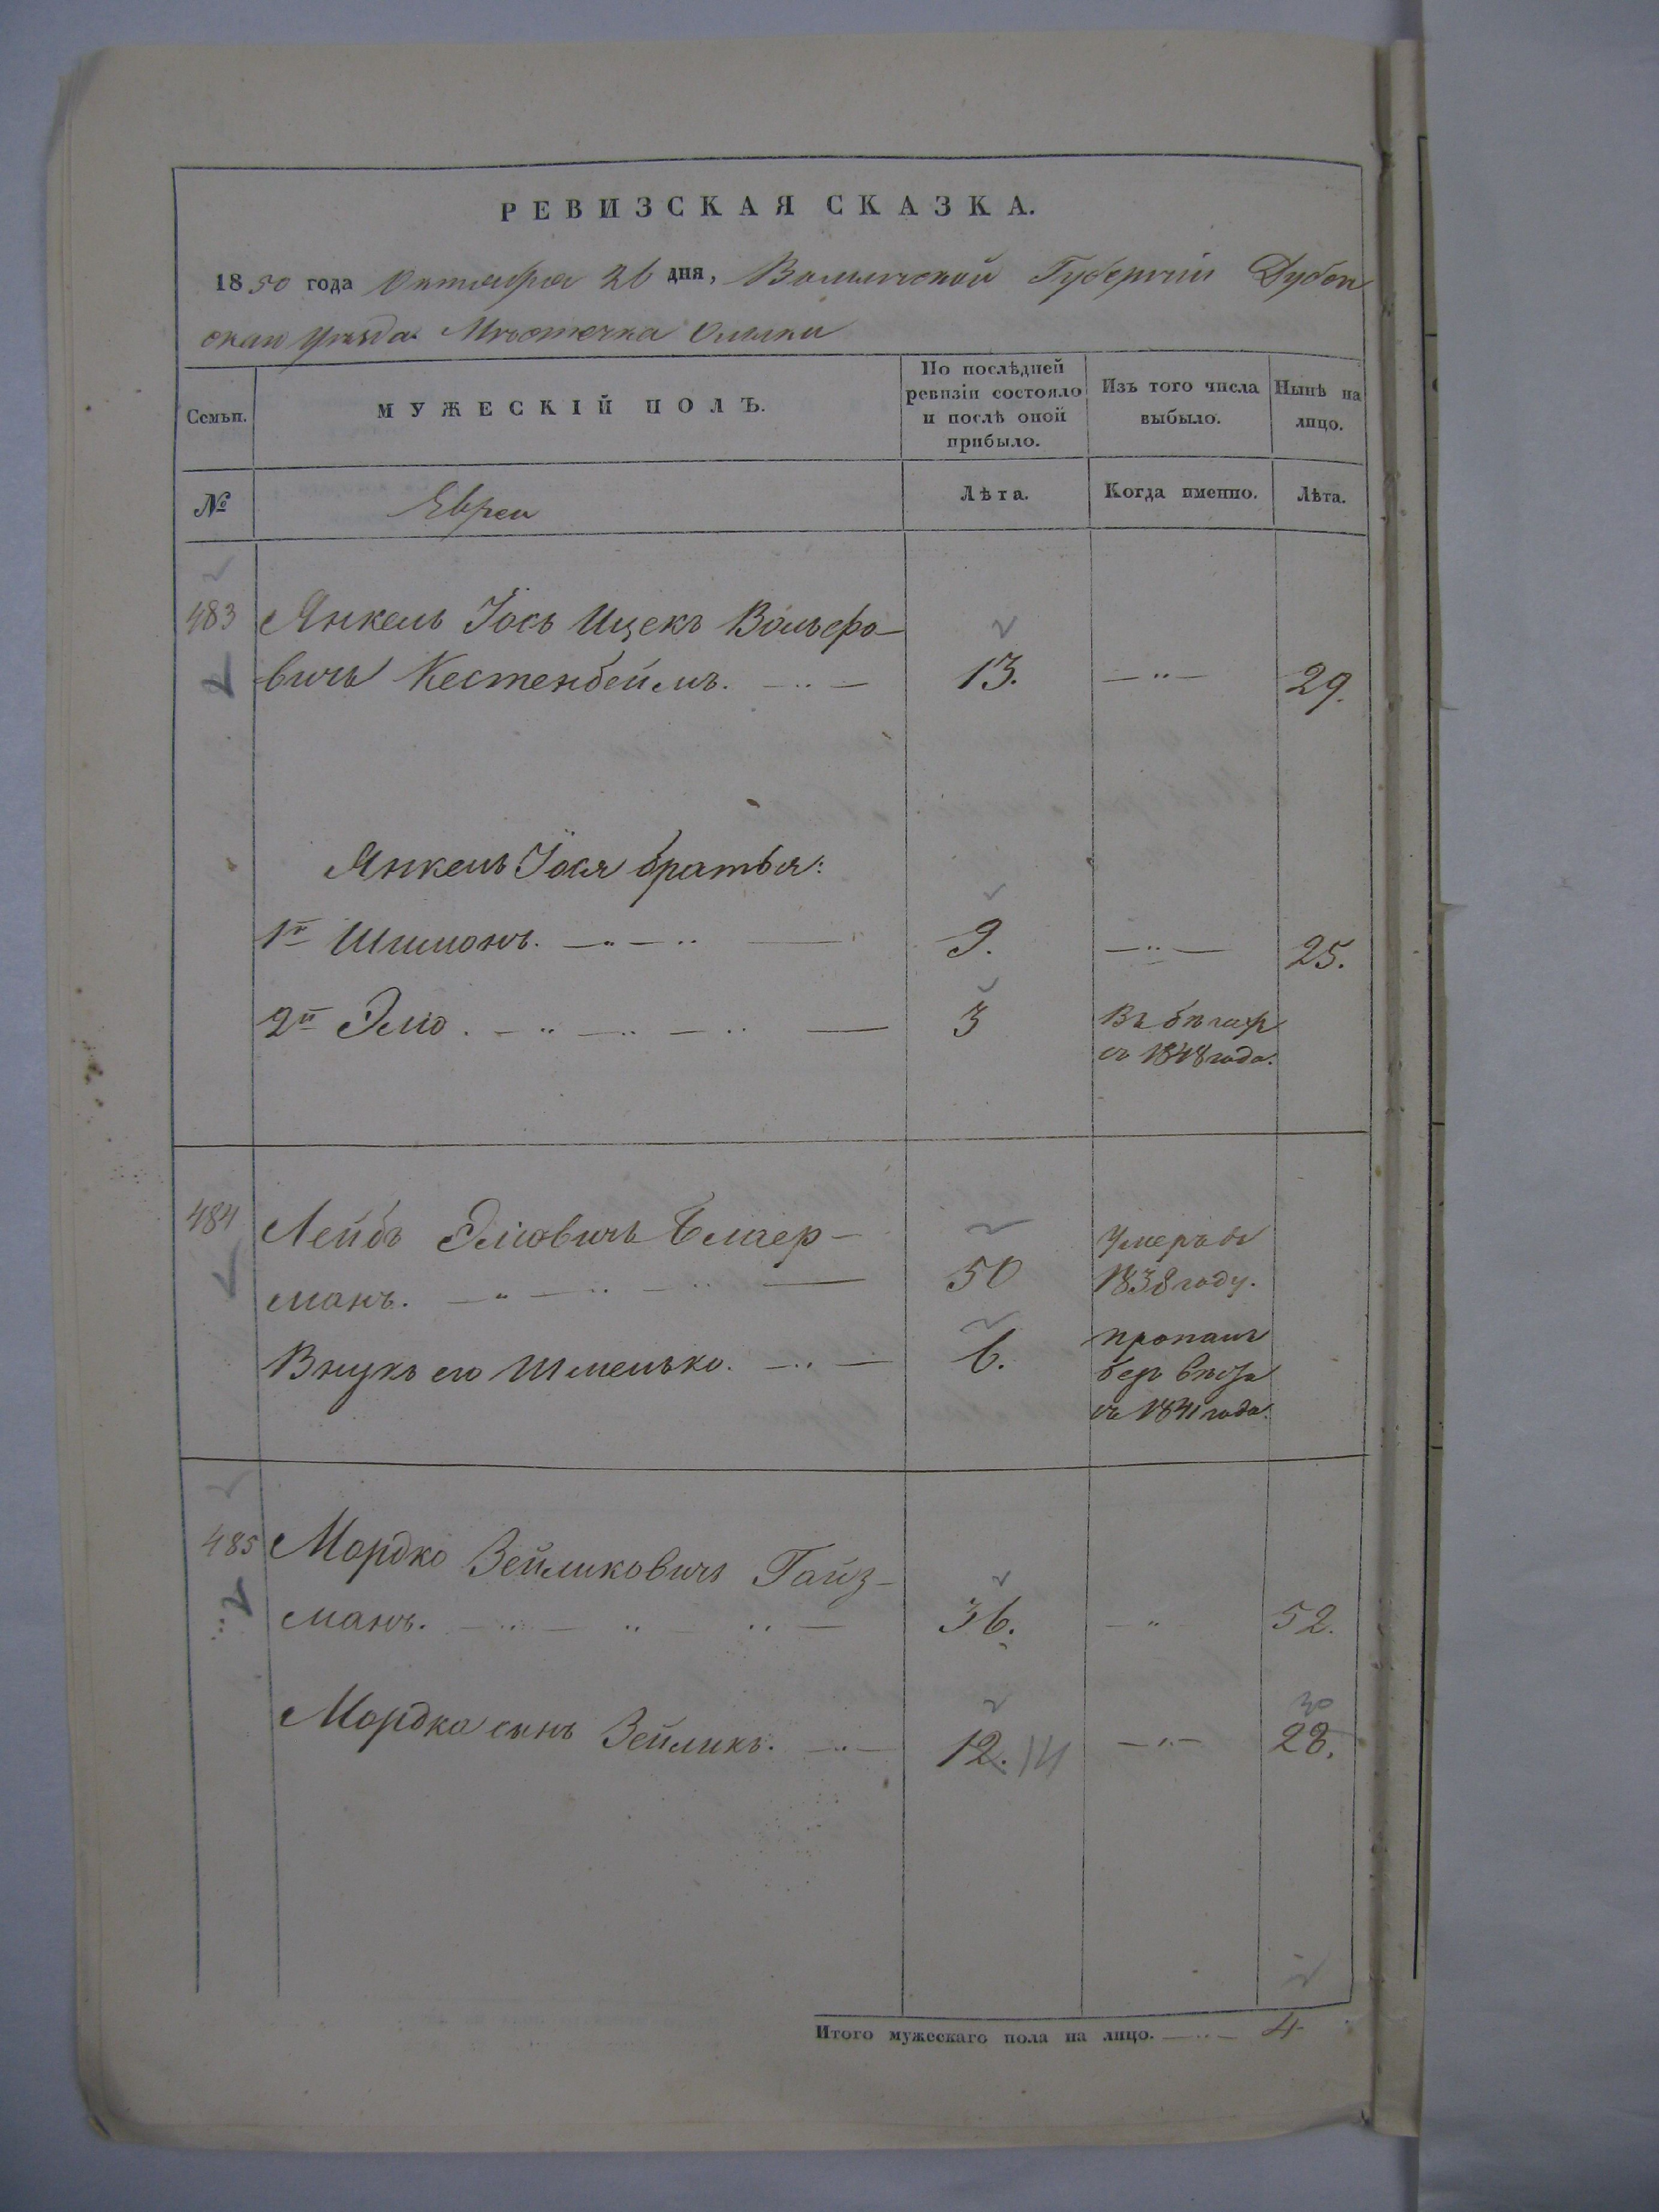 РЕВИЗСКАЯ СКАЗКА.
1850 года Октября 26 дня, Волынской Губерніи Дубен
скаго уѣзда Мѣстечка Олыки
Семьи.
МУЖЕСКІЙ ПОЛЪ.
По послѣдней
ревизіи состояло
и послѣ оной
прибыло.
Изъ того числа
выбыло.
Нынѣ на
лицо.
№
Евреи
Лѣта.
Когда именно.
Лѣта.
483 Янкель Іось Ицекъ Вольфо-
вичъ Кестенбеймъ. 13. 29.
Янкель Іося братья:
1й Шимонъ. 9. 25.
2й Элю. 3 Въ бѣгахъ
съ 1848 года.
484 Лейбъ Элювичъ
манъ. 50 Умеръ въ
1838 году.
Внукъ его Шмелько. 6. пропалъ
безъ вѣсти
съ 1841 года.
485 Мордко Зейликовичъ Гайз-
манъ. 36. 52.
30
Мордка сынъ Зейликъ. 12. 14 28.
Итого мужескаго пола на лицо. 4